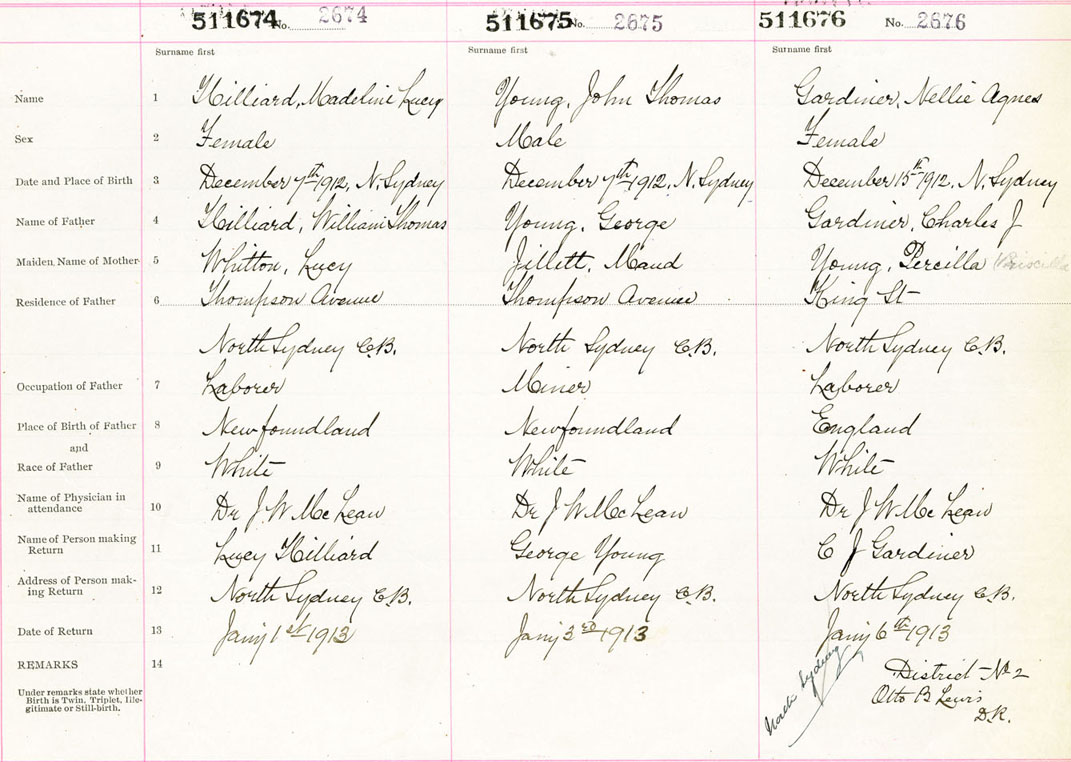 511674 No. 2674 511675 No. 2675 511676 No. 2676
Surname first Surname first Surname first
Name 1 Hilliard, Madeline Lucy Young, John Thomas Gardiner, Nellie Agnes
Sex 2 Female Male Female
Date and Place of Birth 3 December 7th 1912, N. Sydney December 7th 1912, N. Sydney December 15th 1912, N. Sydney
Name of Father 4 Hilliard, William Thomas Young, George Gardiner, Charles J
Maiden Name of Mother 5 Whitton, Lucy Jillett, Maud Young, Percilla (Priscilla
Residence of Father 6 Thompson Avenue Thompson Avenue King St
North Sydney C.B. North Sydney C.B. North Sydney C.B.
Occupation of Father 7 Laborer Miner Laborer
Place of Birth of Father 8 Newfoundland Newfoundland England
and
Race of Father 9 White White White
Name of Physician in
attendance 10 Dr J. W McLean Dr J W McLean Dr J W McLean
Name of Person making
Return 11 Lucy Hilliard George Young C J Gardiner
Address of Person mak-
ing Return 12 North Sydney C.B. North Sydney C.B. North Sydney C.B.
Date of Return 13 Jany 1st 1913 Jany 3rd 1913 Jany 6th 1913
REMARKS 14 District No 2
Under remarks state whether
Birth is Twin, Triplet, Ille-
gitimate or Still-birth.
Otto B Lewis
D.R.
North Sydney